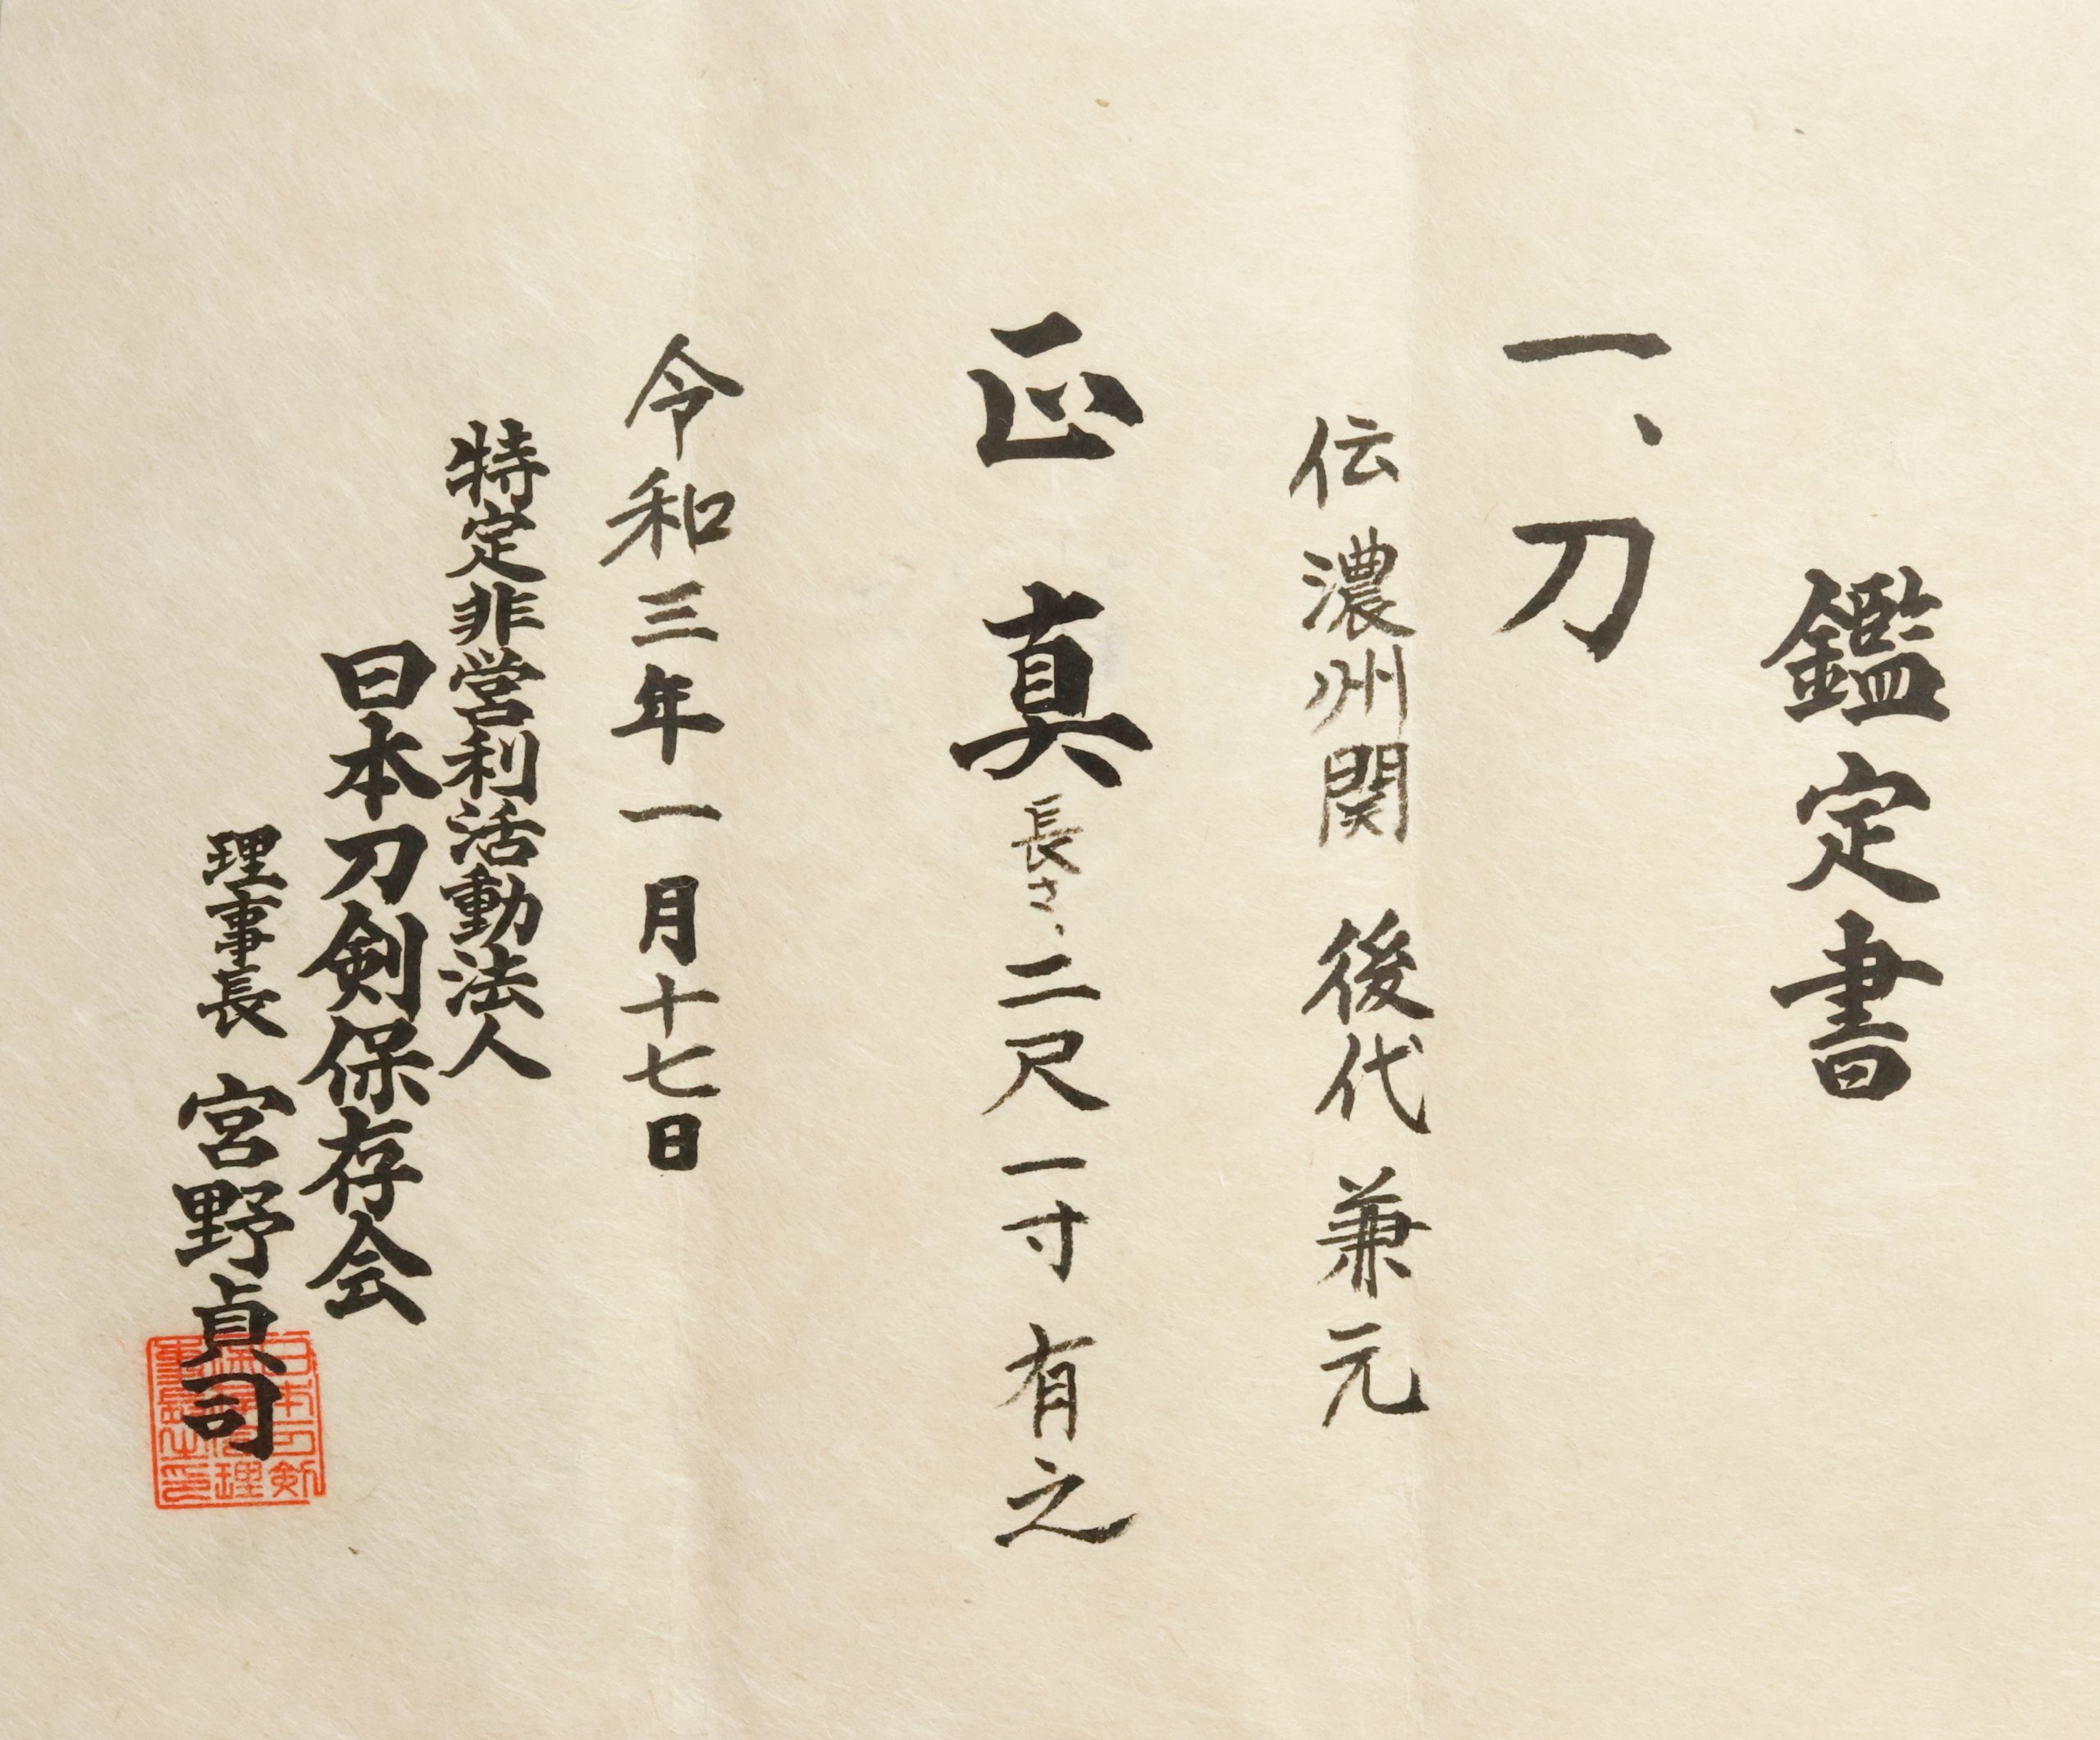 鑑定書
一、刀
伝濃州関 後代 兼元
正真 長さ、二尺一寸 有之
令和三年一月十七日
特定非営利活動法人
日本刀剣保存会
理事長 宮野貞司